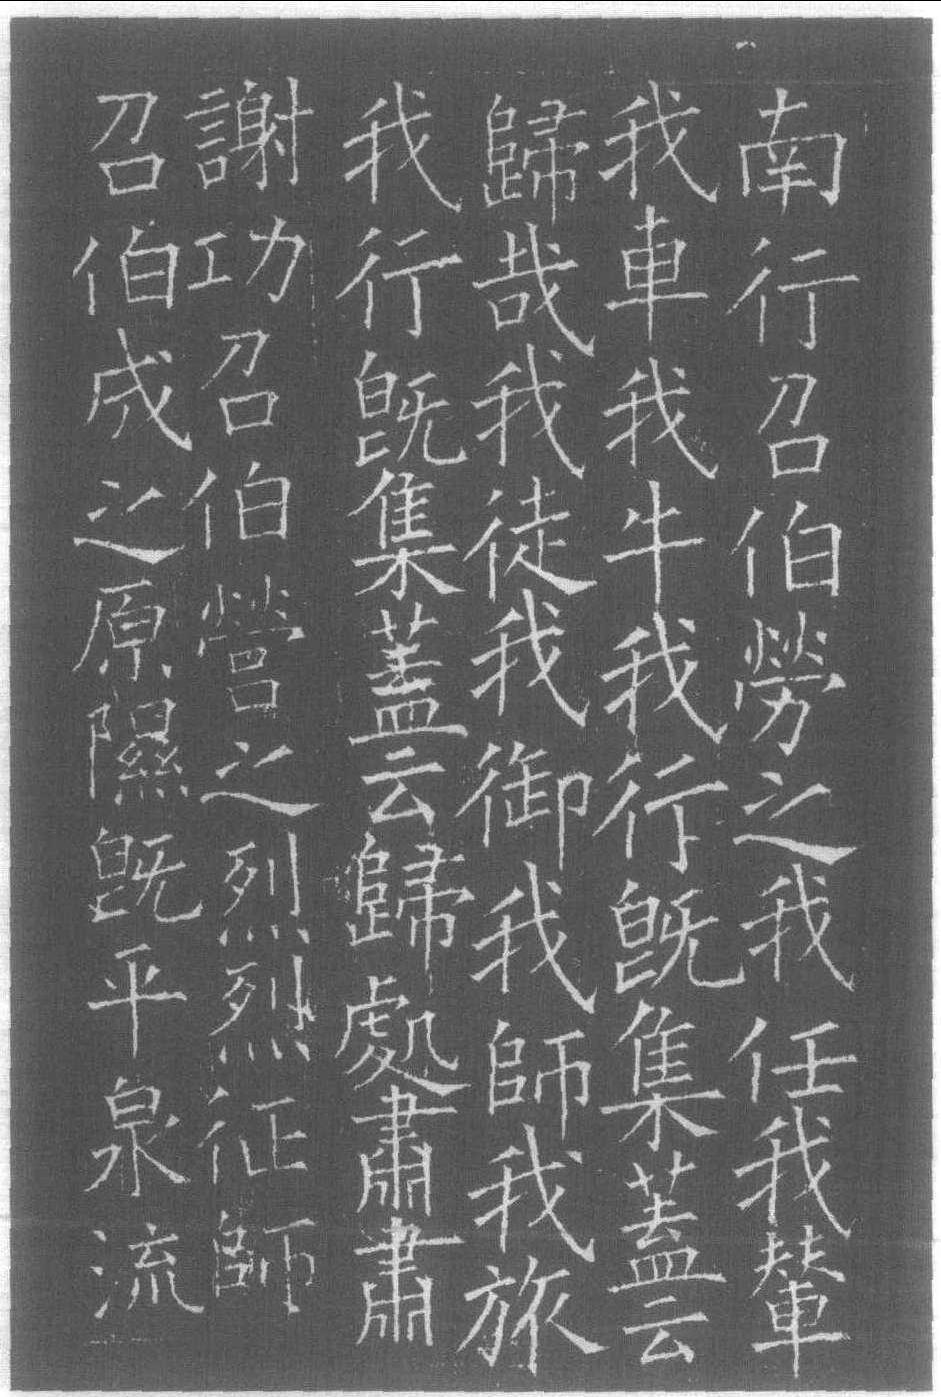 南行召伯勞之我任我輦
我車我牛我行既集蓋云
歸哉我徒我御我師我旅
我行既集蓋云歸處肅肅
謝功召伯營之烈烈征師
召伯成之原隰既平泉流